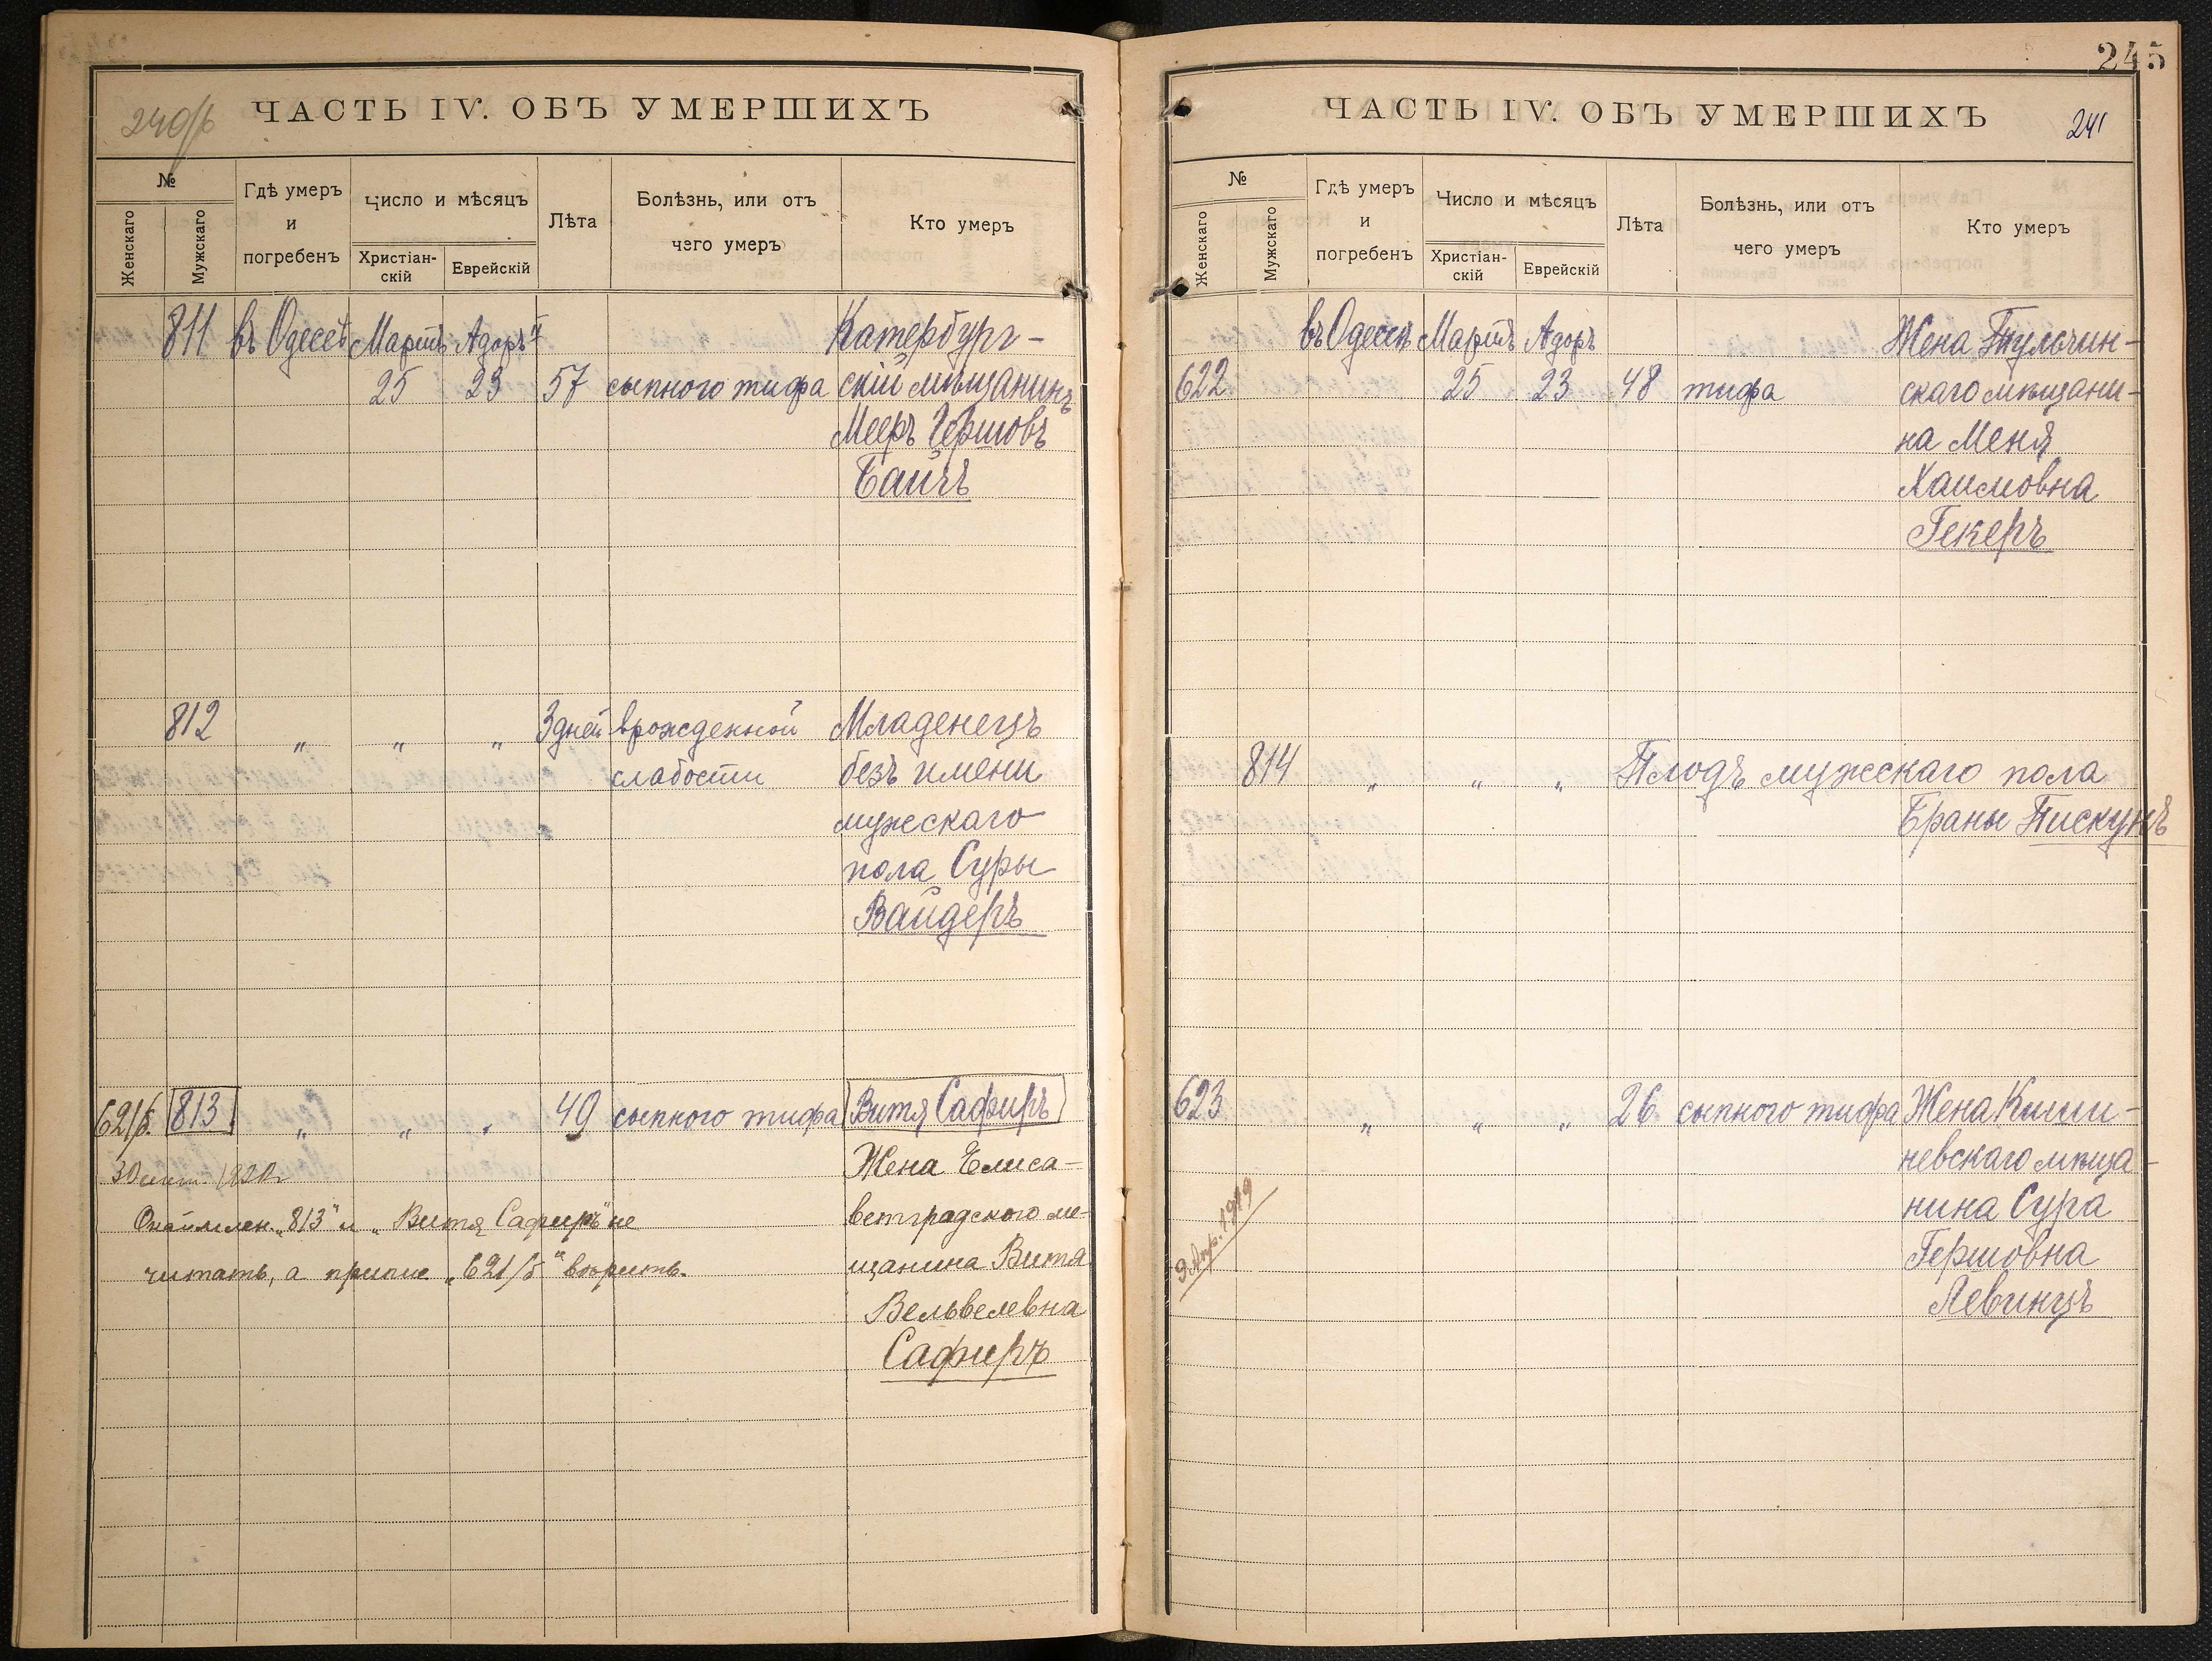 240/б
ЧАСТЬ IV. ОБЪ УМЕРШИХЪ
№
Женскаго
Мужскаго
Гдѣ умеръ
и
погребенъ
Число и мѣсяцъ
Христіан-
скій
Еврейскій
Лѣта
Болѣзнь, или отъ
чего умеръ
Кто умеръ
811 въ Одессѣ Мартъ Адоръ II Катербург-
25 23 57 сыпного тифа скій мѣщанинъ
Мееръ Гершовъ
Байчъ
812 " " " 3 дней врожденной Младенецъ
слабости безъ имени
мужскаго
пола Суры
Вайдеръ
621/б. 813 " " " 49 сыпного тифа Витя Сафиръ
30 1920 г Жена Елиса-
"813" и "Витя Сафиръ" не ветградского мѣ-
читать, а "621/б" вѣрить. щанина Витя
Вельвелевна
Сафиръ
245
ЧАСТЬ IV. ОБЪ УМЕРШИХЪ
241
№
Женскаго
Мужскаго
Гдѣ умеръ
и
погребенъ
Число и мѣсяцъ
Христіан-
скій
Еврейскій
Лѣта
Болѣзнь, или отъ
чего умеръ
Кто умеръ
въ Одессѣ Мартъ Адоръ Жена Тульчин-
622 25 23 48 тифа скаго мѣщани-
на Меня
Хаимовна
Гекеръ
814 " " " Плодъ мужескаго пола
Браны Пискунъ
623 " " " 26 сыпного тифа Жена Киши-
невскаго мѣща-
нина Сура
Гершовна
Левинцъ
9 Апр. 1919